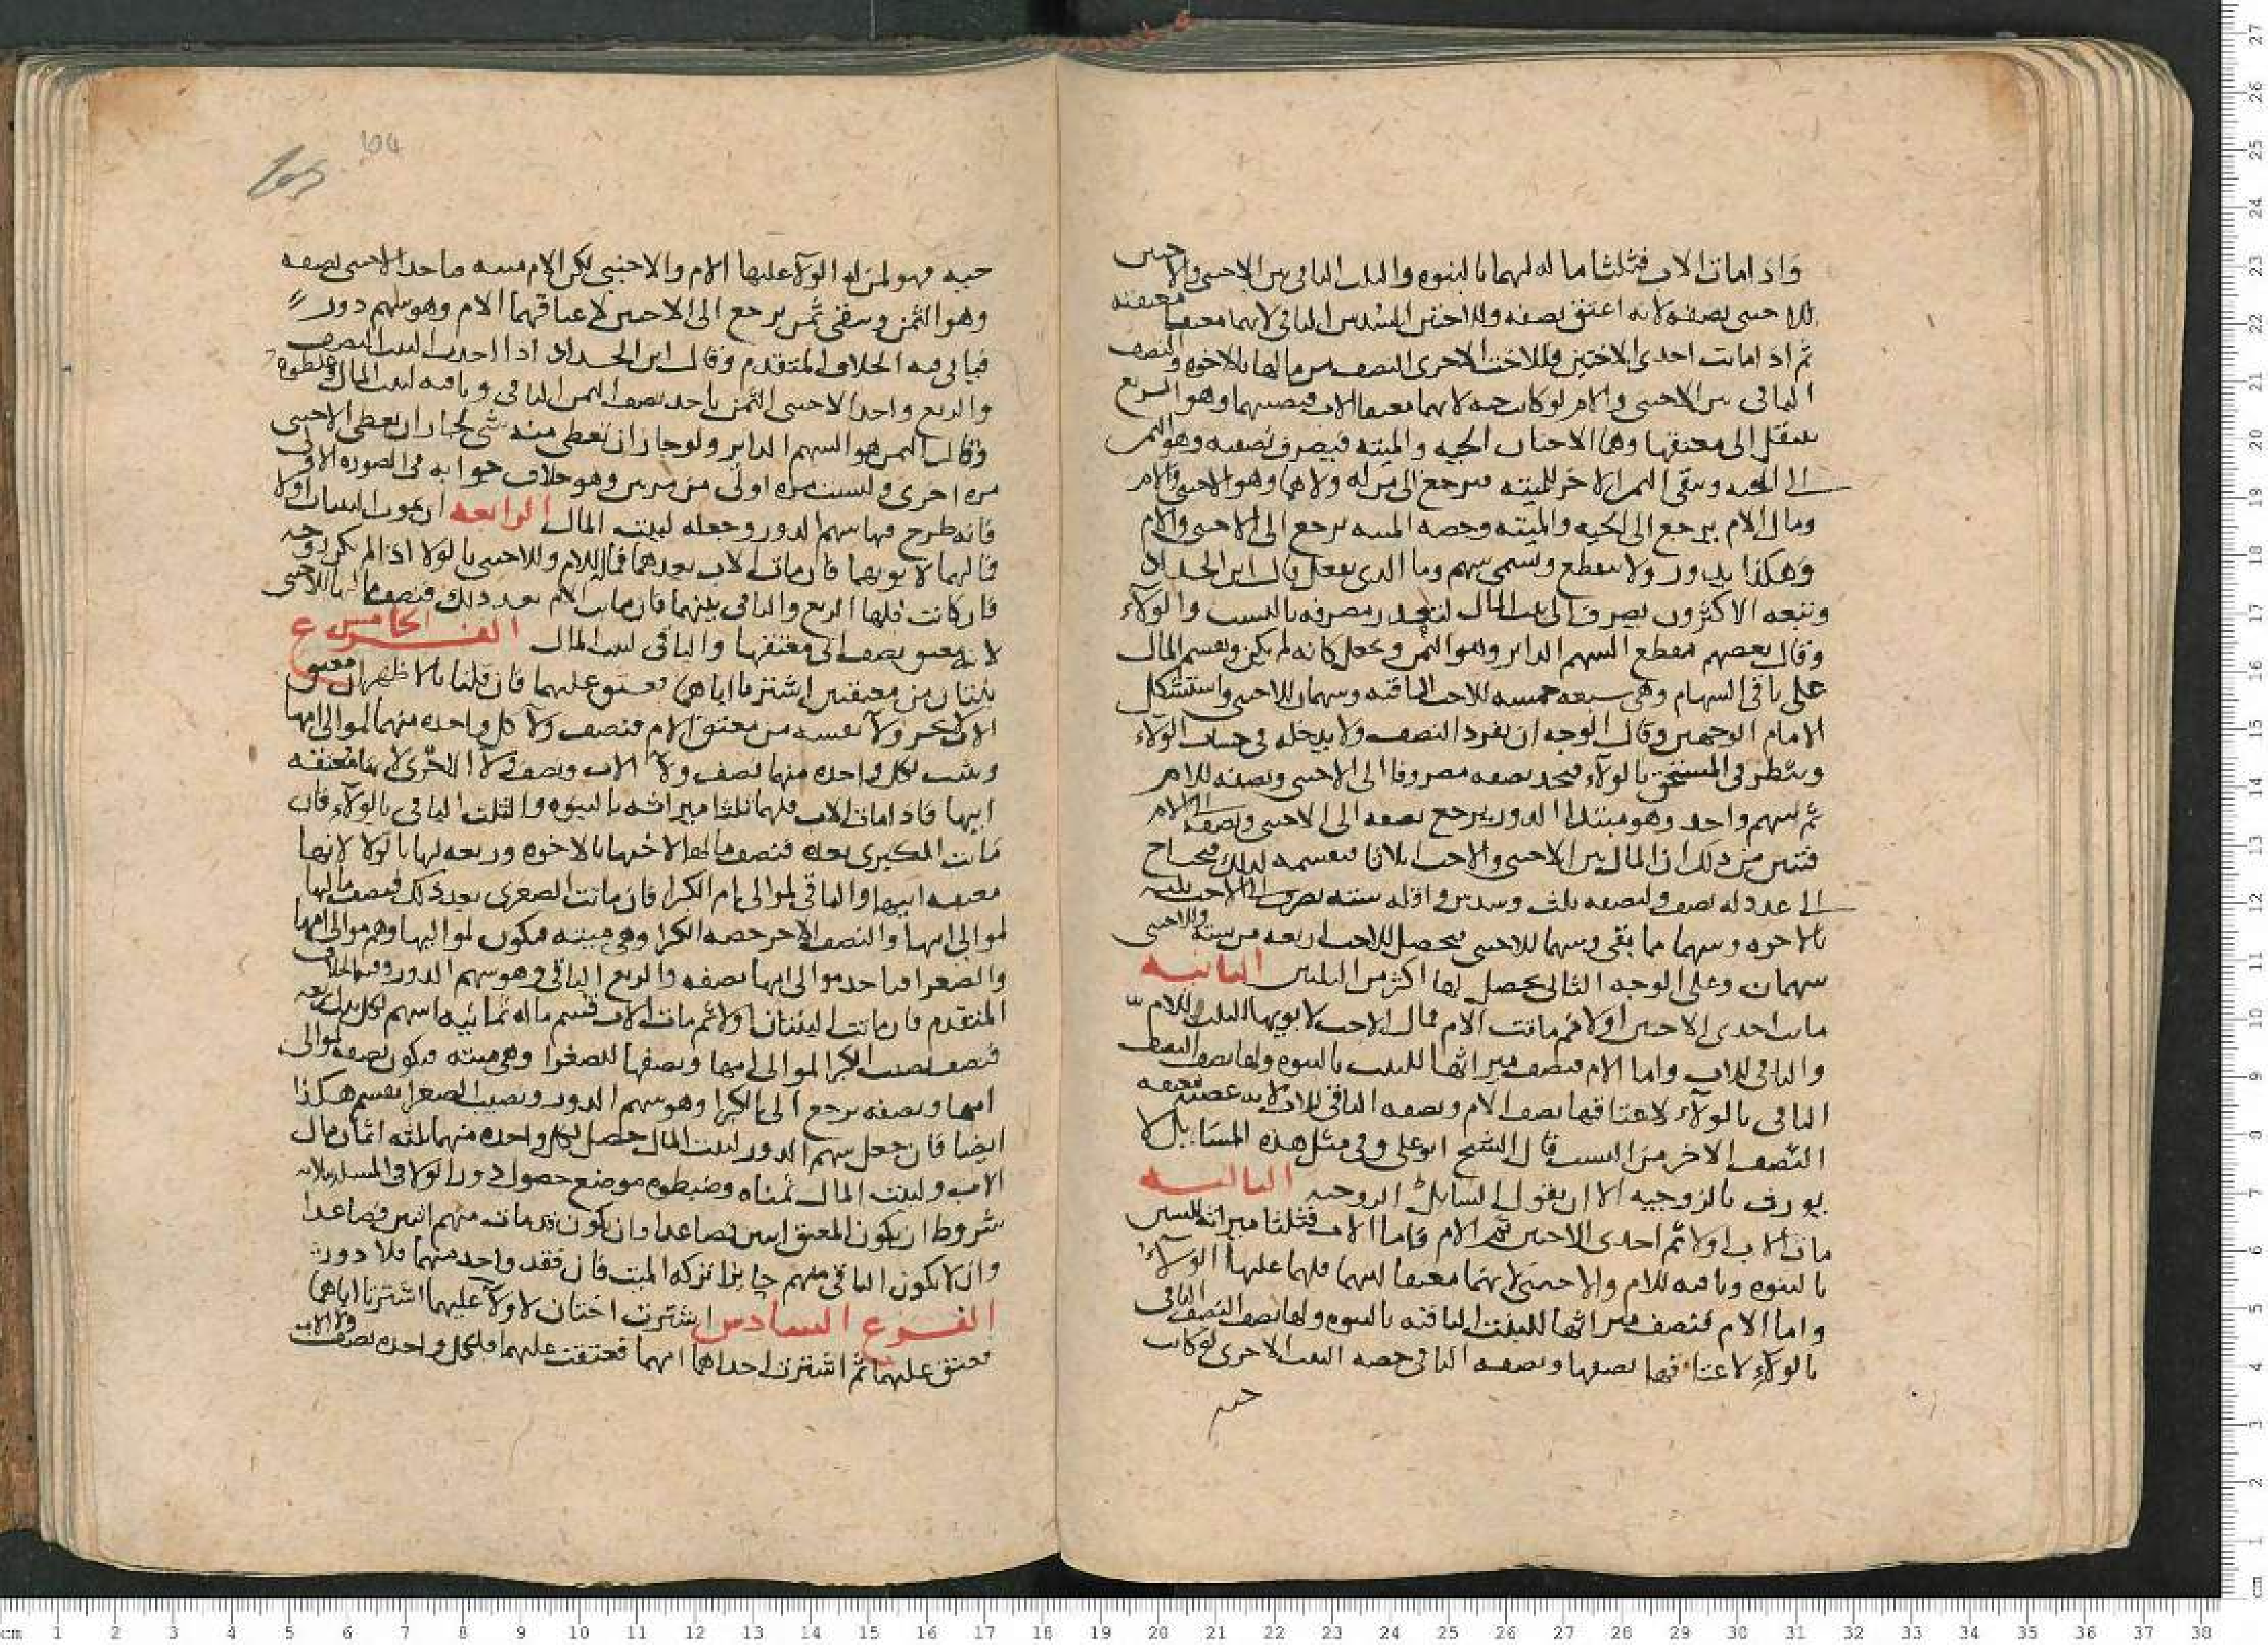 واذا مات الاب فثلثا ماله لهما بالبنوه والثلث الباقي بين الاجنبي والاختين
للاجنبي نصفه لانه اعتق نصفه وللاختين السدس الباقي لانهما معتقتا معتقه
ثم اذا ماتت احدى الاختين فللاخت الاخرى النصف من مالها بالاخوه والنصف
الباقي بين الاجنبي والام لو كانت حيه لانهما معتقا الاب فنصيبهما وهو الربع
ينتقل الى معتقها وهما الاختان الحيه والميته فيصرف نصفه وهو الثمن
الى الحيه ويبقى الثمن الاخر للميته فيرجع الى من له ولاها وهو الاجنبي والام
ومال الام يرجع الى الحيه والميته وحصه الميته يرجع الى الاجنبي والام
وهكذا يدور ولا ينقطع ويسمى سهم وما الذي يفعل قال ابن الحداد
وتبعه الاكثرون يصرف الى بيت المال لتعذر مصرفه بالنسب والولاء
وقال بعضهم يقطع السهم الداير وهو الثمن ويجعل كانه لم يكن ويقسم المال
على باقي السهام وهي سبعه خمسه للاخت الباقيه وسهمان للاجنبي واستشكل
الامام الوجهين وقال الوجه ان يفرد النصف ولا يدخله في حساب الولاء
وينظر في المستحق بالولاء فيجد نصفه مصروفا الى الاجنبي ونصفه للام
ثم سهم واحد وهو مبتدا الدور يرجع نصفه الى الاجنبي ونصفه الى الام
فتبين من ذلك ان المال بين الاجنبي والاخت اثلاثا فيقسمه لذلك فيحتاج
الى عدد له نصف ولنصفه ثلث وسدس واقله سته يصرف الى الاخت ثلثه
بالاخوه وسهما مما بقي وسهما للاجنبي فيحصل للاخت اربعه من سته وللاجنبي
سهمان وعلى الوجه الثاني يحصل لها اكثر من الثلثين الثانيه
ماتت احدى الاختين اولا ثم ماتت الام فمال الاخت لابويها الثلث للام
والباقي للاب واما الام فنصف ميراثها للبنت بالبنوه ولها نصف النصف
الباقي بالولاء لاعتاقها نصف الام ونصفه الباقي للاب لانه عصبه معتقه
النصف الاخر من البنت قال الشيخ ابو علي وفي مثل هذه المسائل لا
يورث بالزوجيه الا ان يقول السايل الزوجيه الثالثه
مات الاب اولا ثم احدى الاختين ثم الام فاما الاب فثلثا ميراثه للبنتين
بالبنوه وباقيه للام والاجنبي لانهما معتقا ابيهما فلهما عليها الولاء
واما الام فنصف ميراثها للبنت الباقيه بالبنوه ولها نصف النصف الباقي
بالولاء لاعتاقها نصفها ونصفه الباقي حصه البنت الاخرى لو كانت
حيه
حيه فهو لمن له الولاء عليها الام والاجنبي لكن الام ميته فياخذ الاجنبي نصفه
وهو الثمن ويبقى ثمن يرجع الى الاختين لاعتاقهما الام وهو سهم دور
فياتي فيه الخلاف المتقدم وقال ابن الحداد اذا اخذت البنت النصف
والربع واخذ الاجنبي الثمن ياخذ نصف الثمن الباقي وباقيه لبيت المال وغلطوه
وقال الثمن هو السهم الداير ولو جاز ان يعطى منه شي لجاز ان يعطى الاجنبي
مره اخرى وليست مره اولى من مرتين وهو خلاف جوابه في الصوره الاولى
فانه طرح فيها سهم الدور وجعله لبيت المال الرابعه ان يموت البنتان اولا
فمالهما لابويهما فان مات الاب بعدهما فماله للام وللاجنبي بالولا اذا لم تكن زوجه
فان كانت فلها الربع والباقي بينهما فان ماتت الام بعد ذلك فنصف مالها للاجنبي
لانه معتق نصف ابي معتقها والباقي لبيت المال الفرع الخامس
بنتان من معتقتين اشترتا اباهما فعتق عليهما فان قلنا بالاظهر ان معتق
الاب لا يجر ولاء نفسه من معتق الام فنصف ولاء كل واحده منهما لموالي امها
ويثبت لكل واحده منهما نصف ولاء الاب ونصف ولاء الاخرى لانها معتقه
ابيها فاذا مات الاب فلهما ثلثا ميراثه بالبنوه والثلث الباقي بالولاء فان
ماتت الكبرى بعده فنصف مالها لاختها بالاخوه وربعه لها بالولا لانها
معتقه ابيها والباقي لموالي ام الكبرا فان ماتت الصغرى بعد ذلك فنصف مالها
لموالي امها والنصف الاخر حصه الكبرا وهي ميته فيكون لمواليها وهم موالي امها
والصغرا فياخذ موالي امها نصفه والربع الباقي وهو سهم الدور وفيه الخلاف
المتقدم فان ماتت البنتان اولا ثم مات الاب قسم ماله ثمانيه اسهم لكل بنت اربعه
فنصف نصيب الكبرا لموالي امها ونصفها للصغرا وهي ميته فيكون نصفه لموالي
امها ونصفه يرجع الى الكبرا وهو سهم الدور ونصيب الصغرا يقسم هكذا
ايضا فان جعل سهم الدور لبيت المال حصل لكل واحده منهما ثلثه اثمان مال
الاب ولبيت المال ثمناه وضبطوه موضع حصول دور الولا في المسايل بثلاثه
شروط ان يكون المعتق اثنين فصاعدا وان يكون قد مات منهم اثنين فصاعدا
وان لا يكون الباقي منهم حايزا تركه الميت فان فقد واحد منهما فلا دور
الفرع السادس اشترت اختان لا ولاء عليهما اشترتا اباهما
فعتق عليهما ثم اشترت احداهما امهما فعتقت عليهما فلكل واحده نصف ولاء الاب